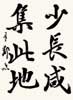 少長咸
集此地